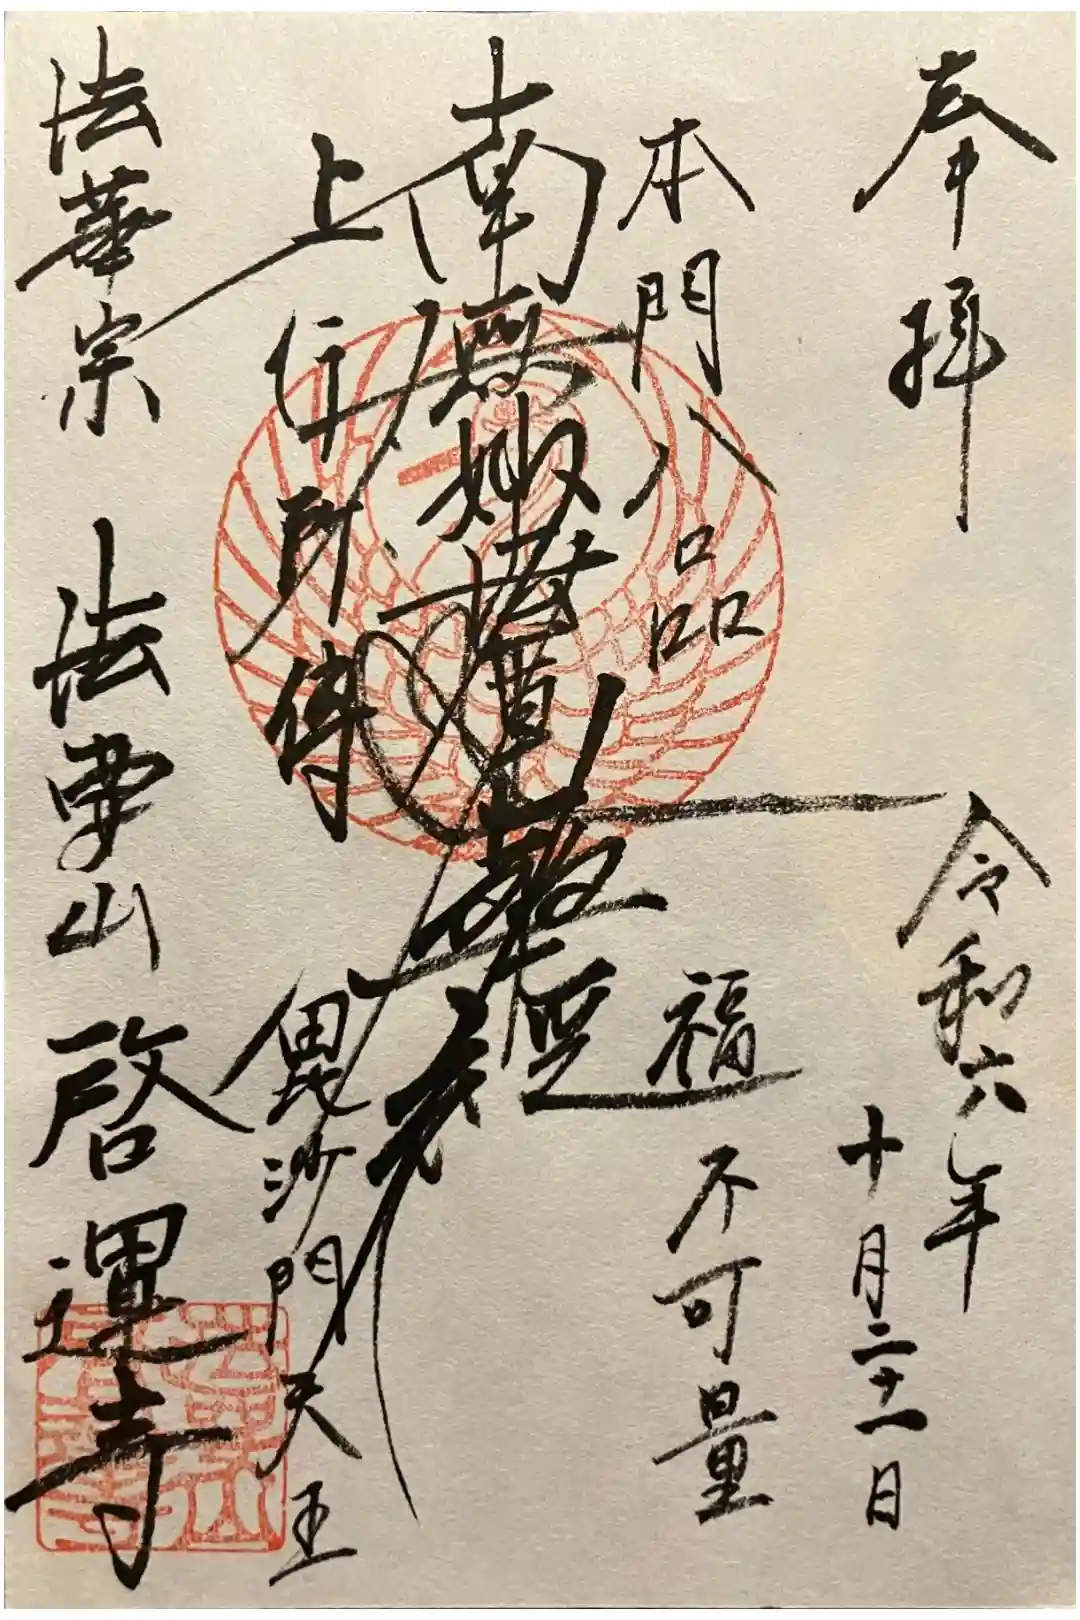 奉拝
令和六年
十月二十一日
本門八品
福不可量
南無妙法蓮華經
上行所傳
毘沙門天王
法華宗 法要山 啓運寺